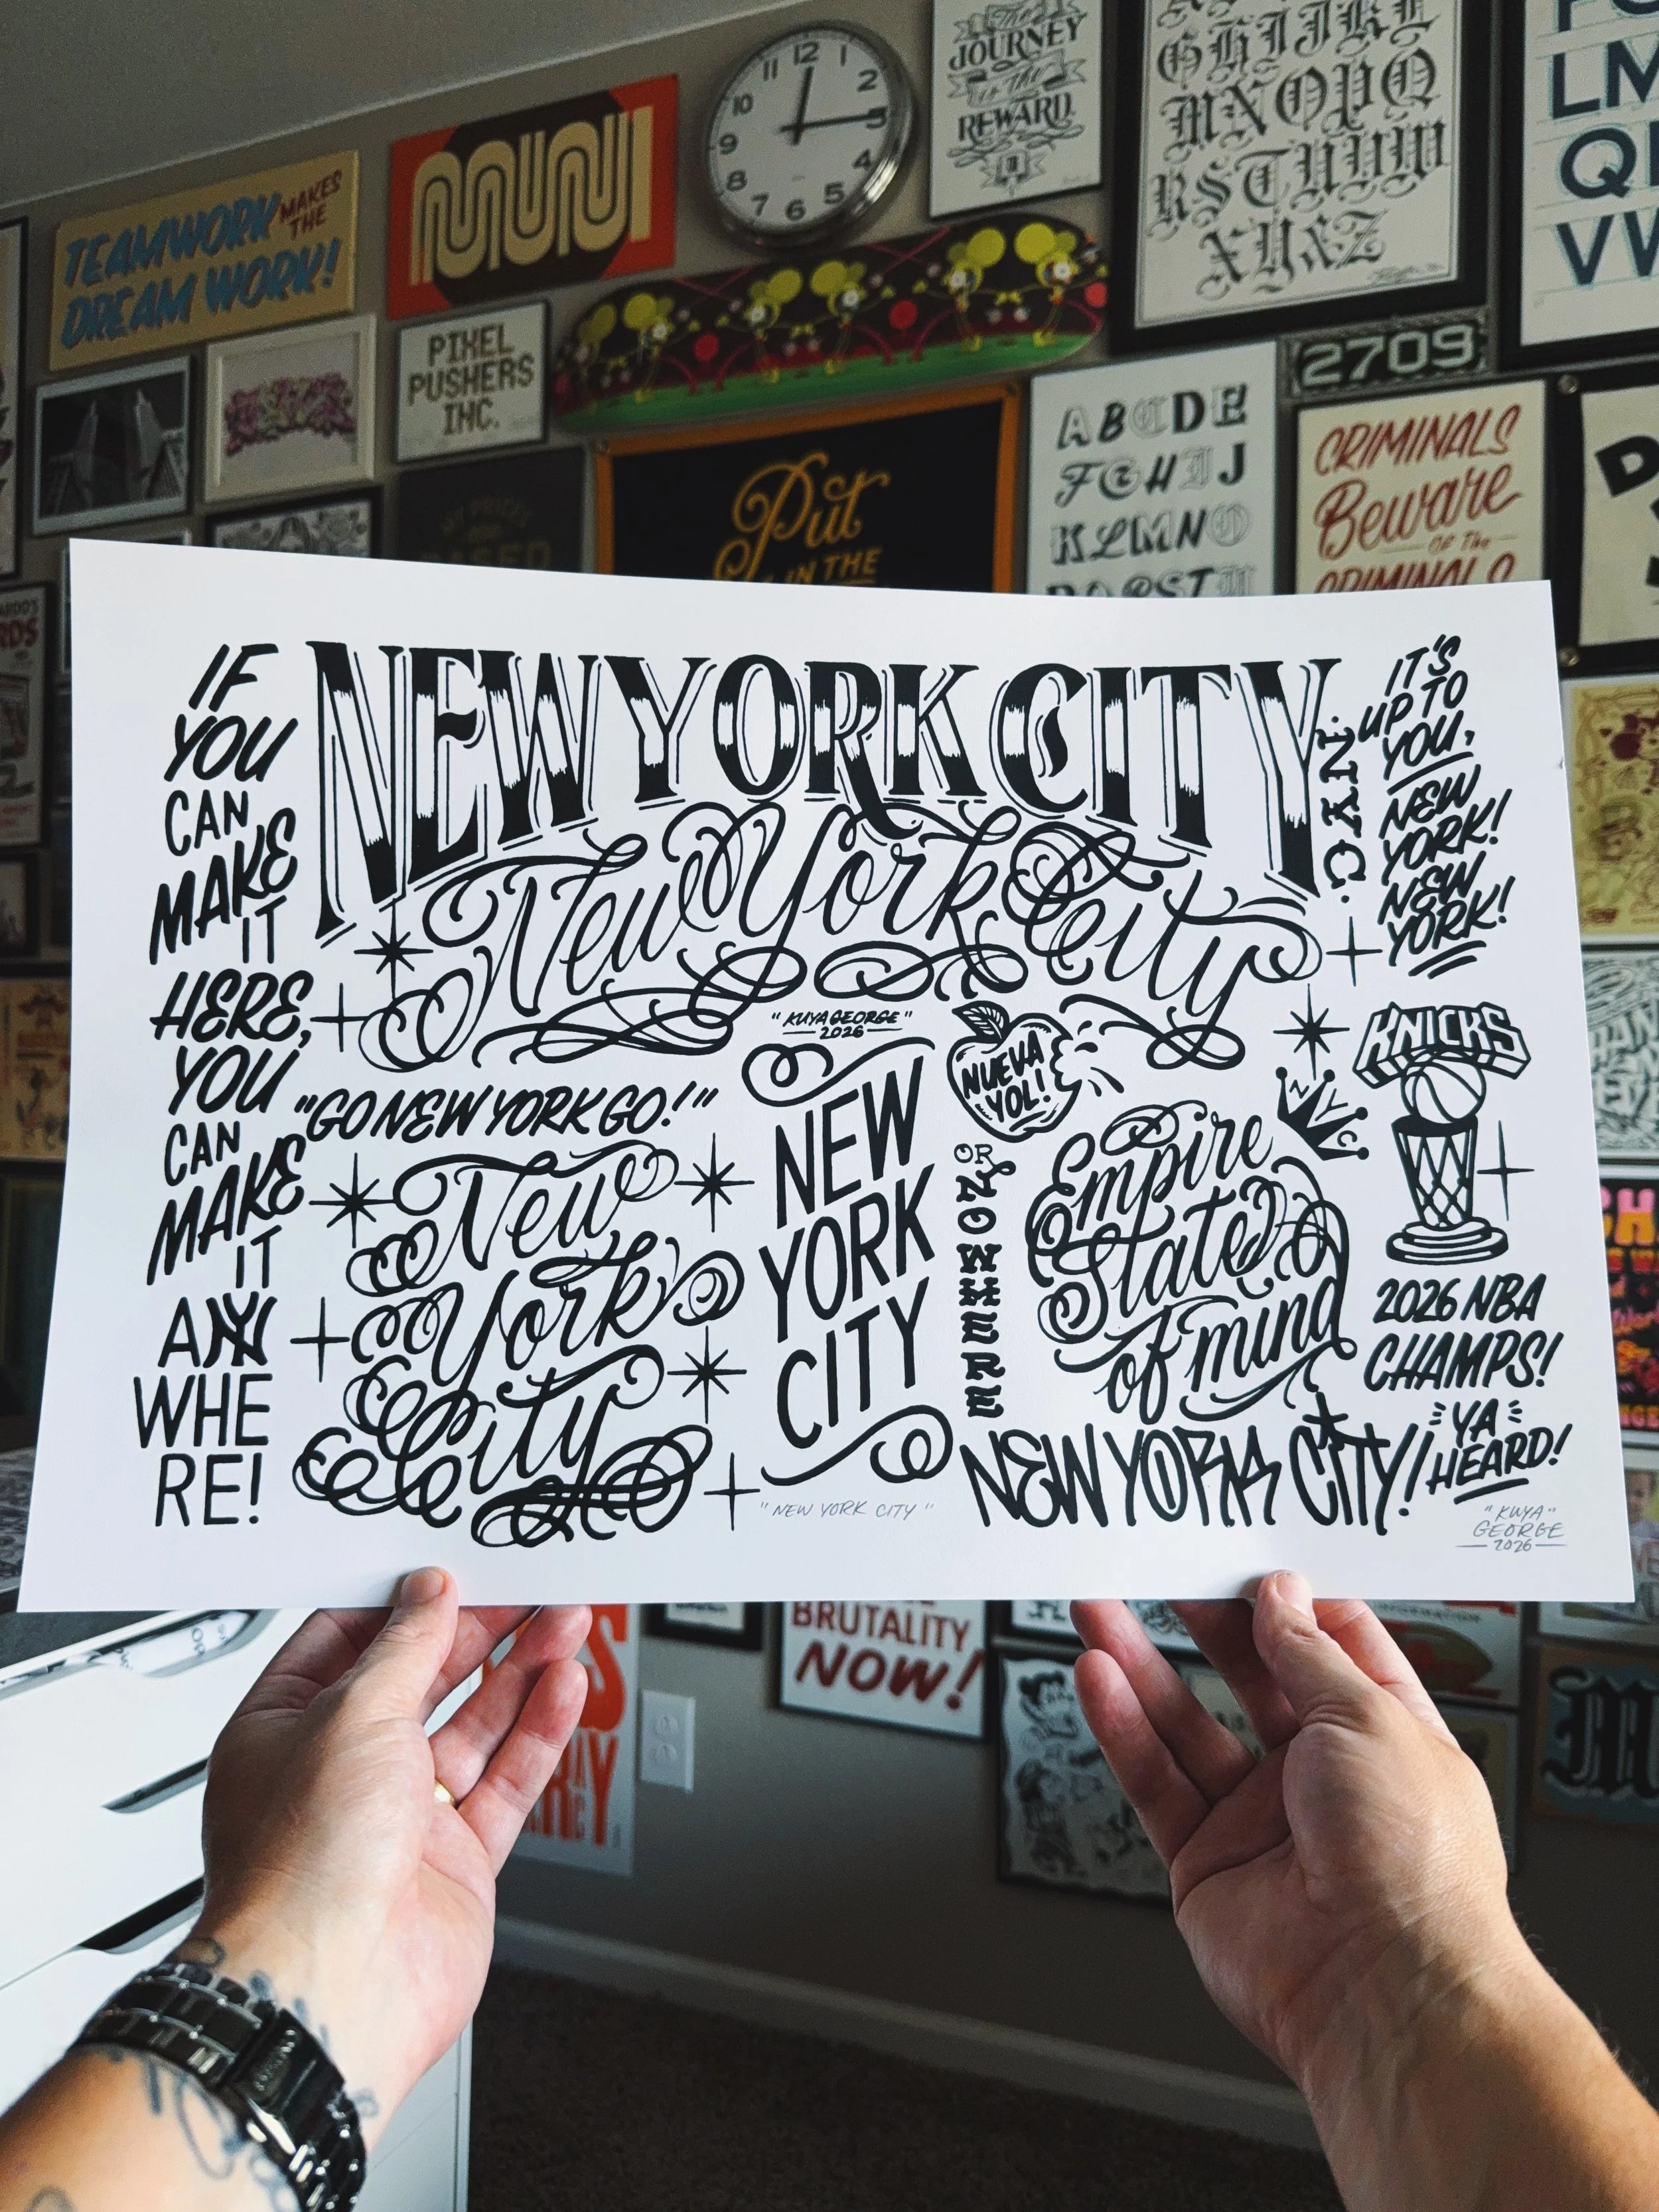 The
JOURNEY
is The
REWARD.
GHIJKL
MNOPQ
RSTUVW
XY&Z
LM
12
1
2
3
4
5
6
7
8
9
10
11
TEAMWORK
MAKES
THE
DREAM WORK!
MUNI
PIXEL
PUSHERS
INC.
2709
ABCDE
FGHIJ
KLMNO
PQRSTU
CRIMINALS
Beware
OF The
CRIMINALS
MY PRICES
Put
IN THE
IF
YOU
CAN
MAKE
IT
HERE,
YOU
CAN
MAKE
IT
ANY
WHE
RE!
NEW YORK CITY
New York City
"KUYA GEORGE"
2026
"GO NEW YORK GO!"
New
York
City
NEW
YORK
CITY
"NEW YORK CITY"
NUEVA
YOL!
OR
NOWHERE
NYC
Empire
State
of mind
NEW YORK CITY!
.NYC.
IT'S
UP TO
YOU,
NEW
YORK!
NEW
YORK!
KNICKS
2026 NBA
CHAMPS!
YA
HEARD!
"KUYA"
GEORGE
2026
BRUTALITY
NOW!